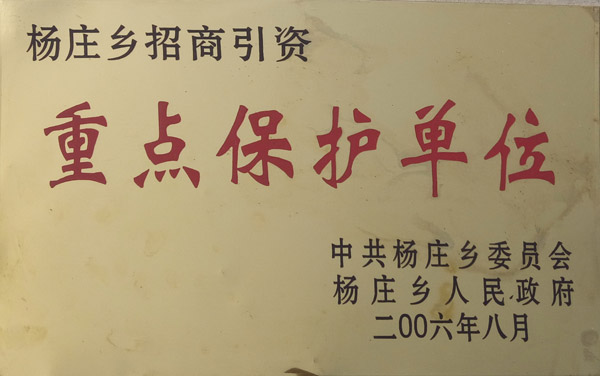 杨庄乡招商引资
重点保护单位
中共杨庄乡委员会
杨庄乡人民政府
二00六年八月